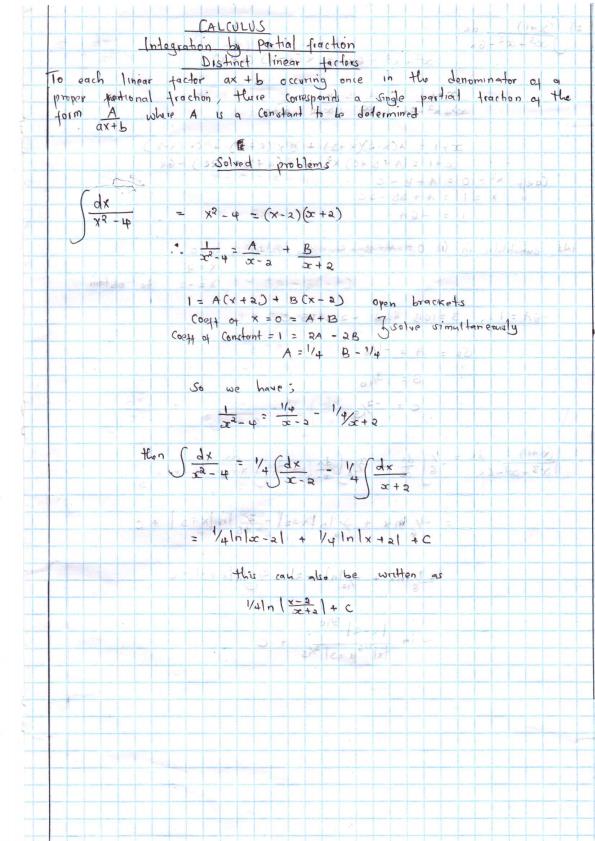 CALCULUS
Integration by Partial fraction
Distinct linear factors
To each linear factor ax + b occuring once in the denominator of a
proper rational fraction, there corresponds a single partial fraction of the
form A/(ax+b) where A is a constant to be determined
Solved problems
∫ dx/(x² - 4) = x² - 4 = (x-2)(x+2)
∴ 1/(x²-4) = A/(x-2) + B/(x+2)
1 = A(x+2) + B(x-2) open brackets
Coeff of x = 0 = A+B
Coeff of Constant = 1 = 2A - 2B } solve simultaneously
A = 1/4 B - 1/4
So we have;
1/(x²-4) = (1/4)/(x-2) - 1/4/x+2
then ∫ dx/(x²-4) = 1/4 ∫ dx/(x-2) - 1/4 ∫ dx/(x+2)
= 1/4 ln|x-2| + 1/4 ln|x+2| + C
this can also be written as
1/4 ln |(x-2)/(x+2)| + C